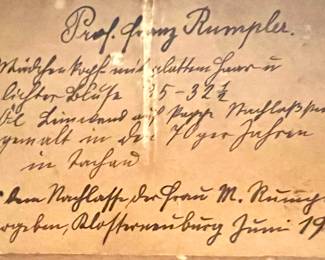 Prof. Franz Rumpler.
Mädchenkopf mit glattem Haar u
lichter Bluse 35-32½
Öl Leinwand auf Pappe Nachlaßste
gemalt in den 70ger Jahren
in Tachau
dem Nachlasse der Frau M. Rump
ergeben, Klosterneuburg Juni 19